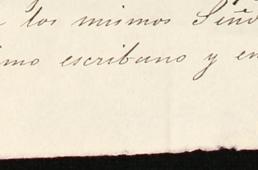 los mismos Seño
imo escribano y en